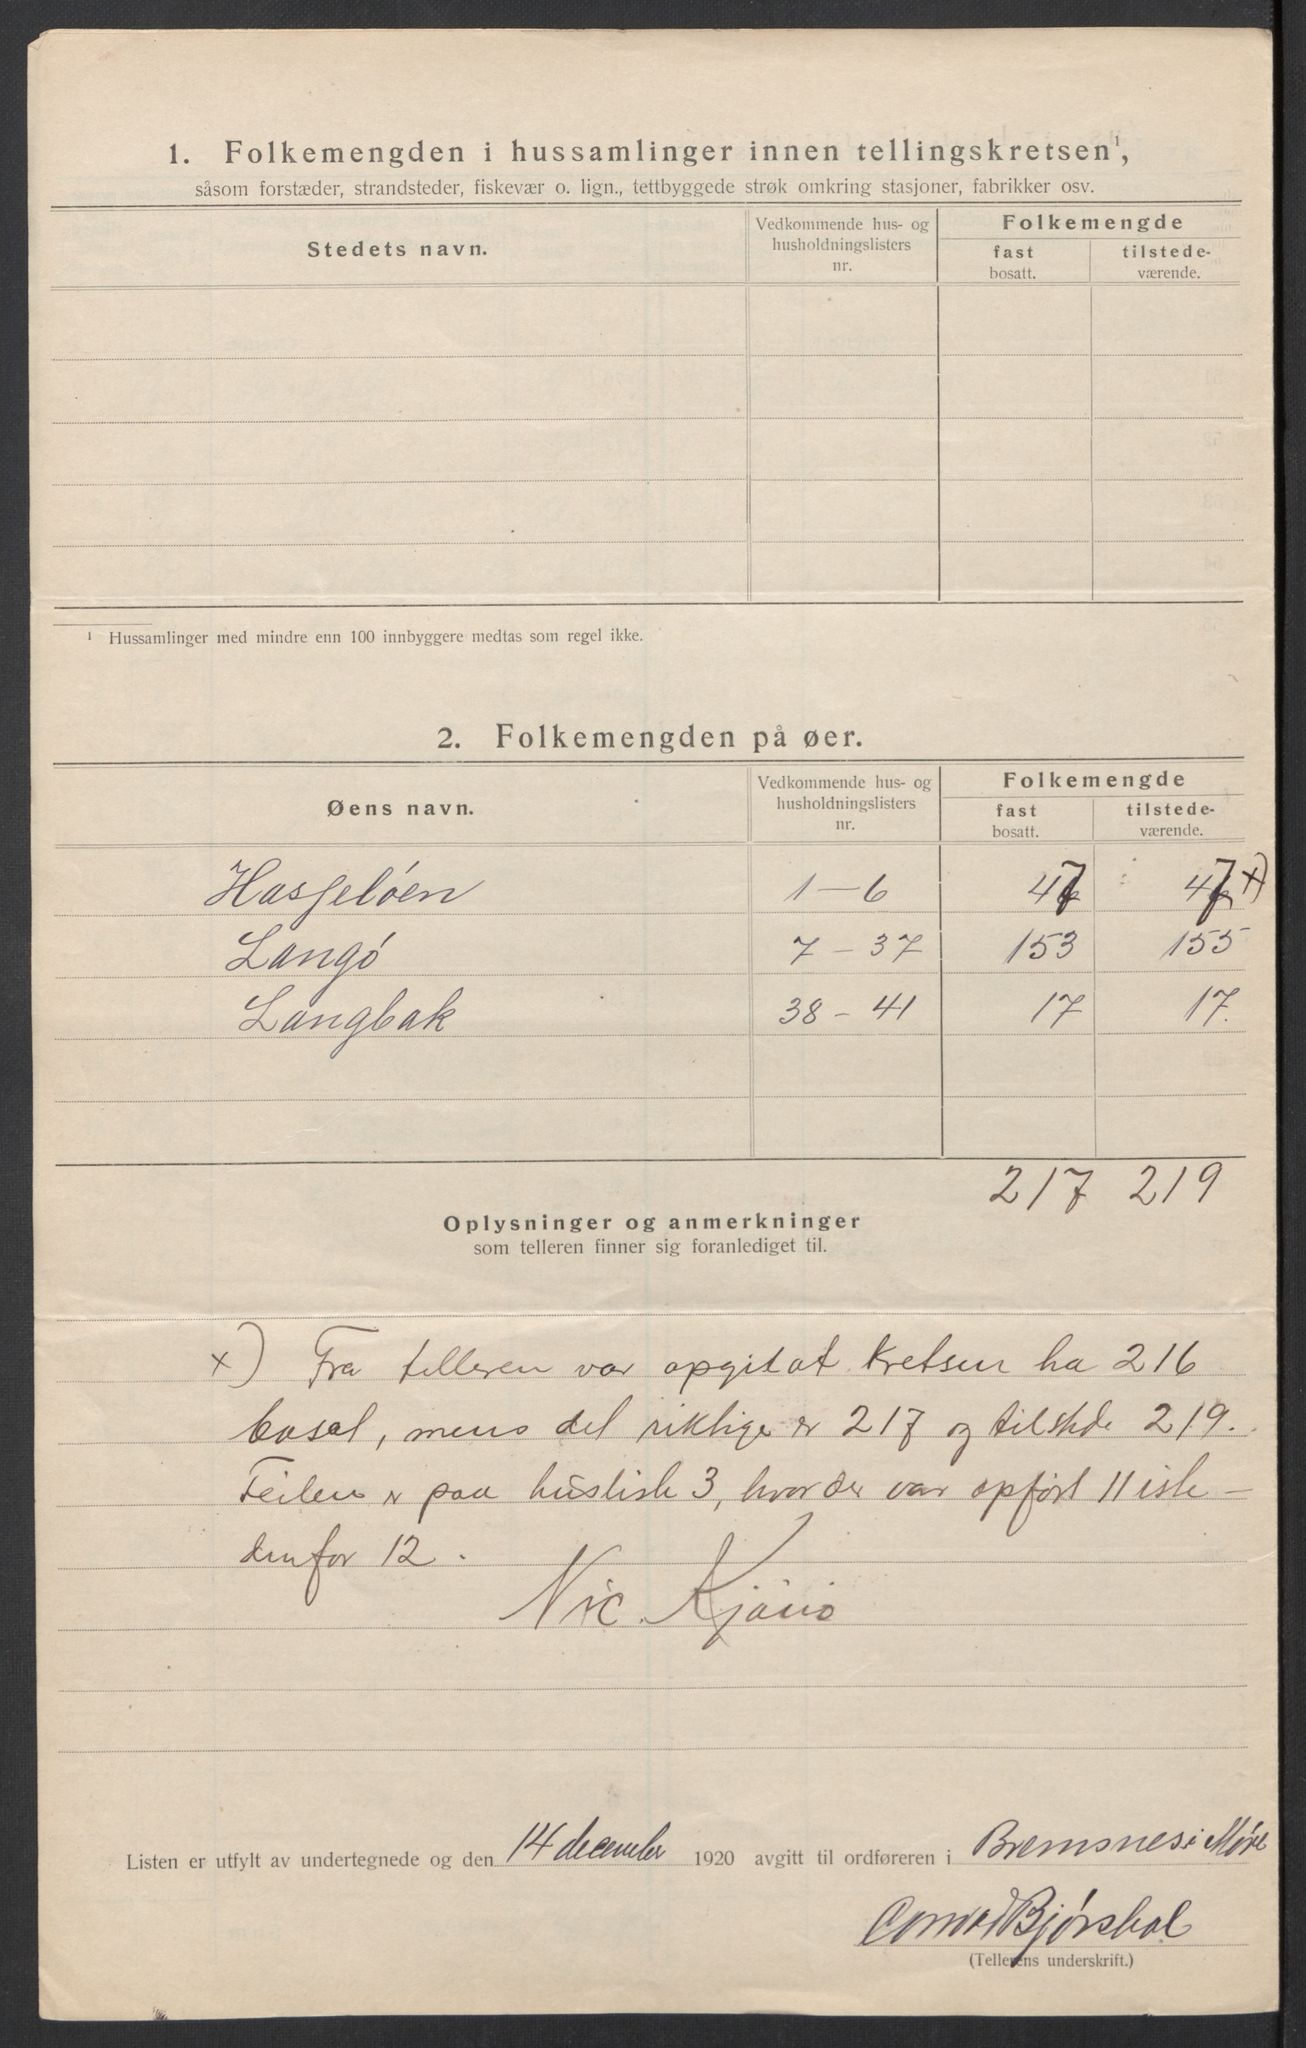 1. Folkemengden i hussamlinger innen tellingskretsen¹,
såsom forstæder, strandsteder, fiskevær o. lign., tettbyggede strøk omkring stasjoner, fabrikker osv.
Stedets navn.
Vedkommende hus- og husholdningslisters nr.
Folkemengde
fast bosatt.
tilstede-værende.
¹ Hussamlinger med mindre enn 100 innbyggere medtas som regel ikke.
2. Folkemengden på øer.
Øens navn.
Vedkommende hus- og husholdningslisters nr.
Folkemengde
fast bosatt.
tilstede-værende.
Hasseløen 1-6 47 47 x)
Langø 7-37 153 155
Langbak 38-41 17 17.
217 219
Oplysninger og anmerkninger
som telleren finner sig foranlediget til.
x) Fra telleren var opgit at kretsen ha 216
bosat, mens det riktige er 217 og tilstede 219.
Feilen er paa husliste 3, hvor der var opført 11 iste-
denfor 12.
Nic.
Listen er utfylt av undertegnede og den 14 december 1920 avgitt til ordføreren i Bremsnes i Møre
Conrad Bjørshol
(Tellerens underskrift.)